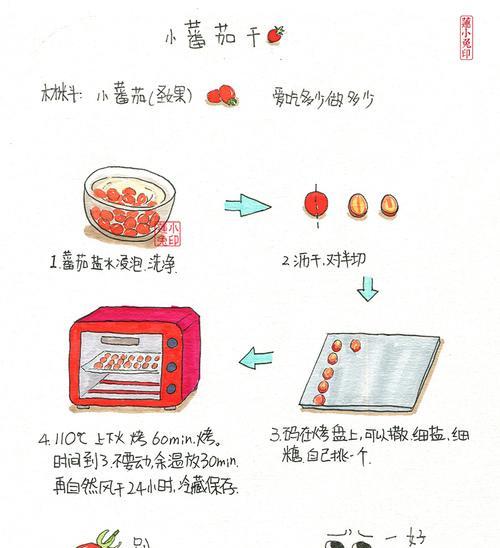 小蕃茄干
蓮小兔印
材料: 小蕃茄(圣女果) 爱吃多少做多少
蓮小兔印
1.蕃茄盐水浸泡.洗净.
2.沥干.对半切
4.110℃ 上下火 烤 60min.烤。
时间到了.不要动,余温放30min.
再自然风干24小时,冷藏保存.
3.码在烤盘上,可以撒.细盐.细
糖.自己挑一个.
别
一好